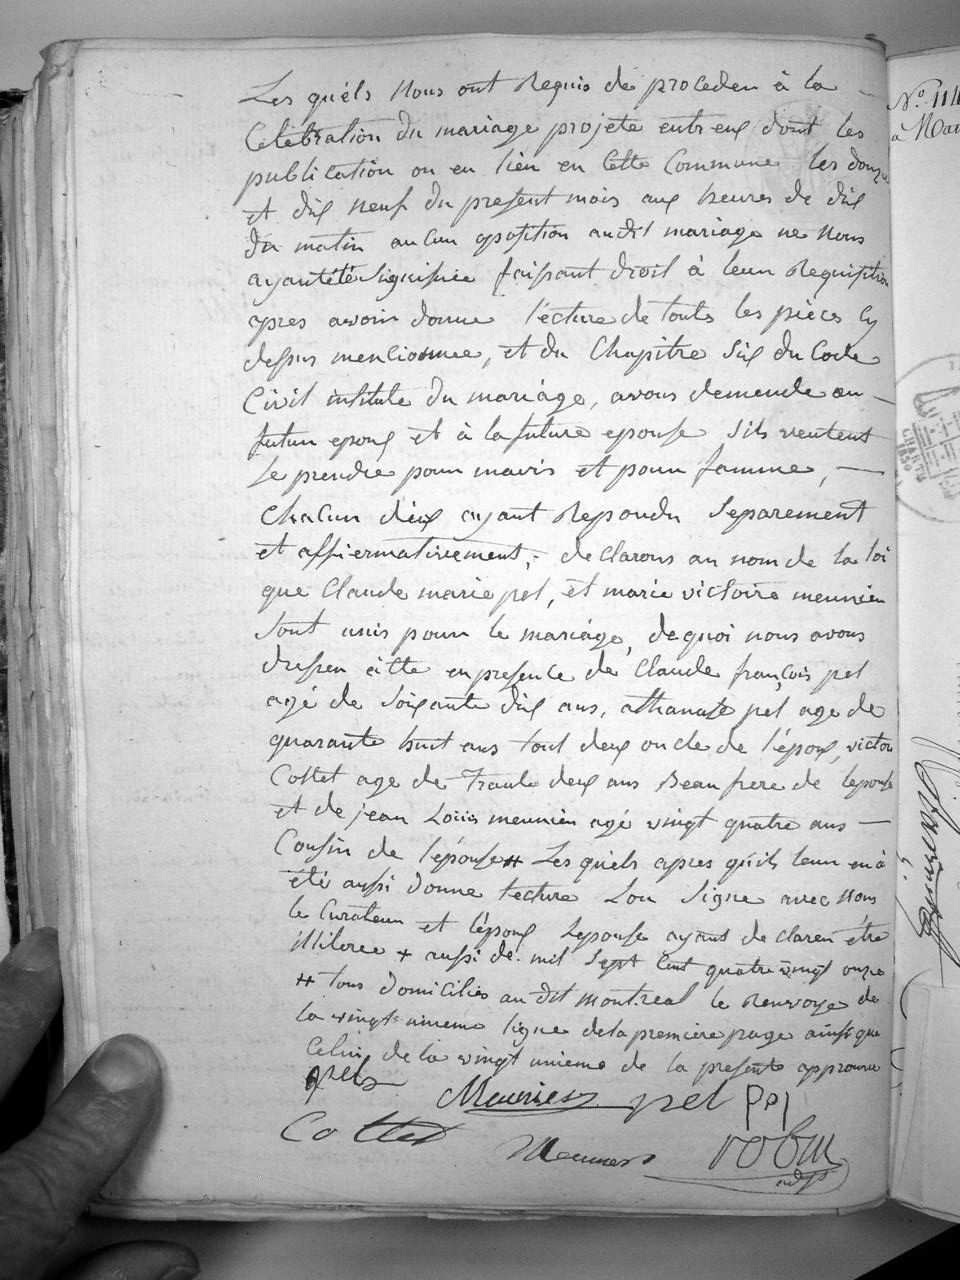 Les quéls Nous ont Requis de proceder à la —
Célébration du mariage projete entr eux dont les
publication on eu lieu en Cette Commune les douze
et dix neuf du present mois aux heures de dix
du matin aucun opposition audit mariage ne Nous
ayant été signifiee faissant droit à leur Requisition
apres avoir donne l'écture de toute les pièces Cy
dessus mencionnee, et du Chapitre Six du Code
Civil intitule du mariage, avons demande au —
futur epoux et à la future epouse Sils veulent
se prendre pour maris et pour famme, —
Chacun d'eux ayant Repondu Separement
et affiermativement, declarons au nom de la loi
que Claude marie pel, et marie victoire meunier
Sont unis pour le mariage, de quoi nous avons
dressé atte en presence de Claude françois pel
agé de Soixante dix ans, athanase pel age de
quarante huit ans tout deux oncle de l'époux, victor
Cottet age de Trante deux ans Beau frere de lepouse
et de jean Louis meunier agé vingt quatre ans —
Cousin de l'épouse # Les quéls apres qu'ils leur en à
été aussi donne lecture L'on Signe avec Nous
le Curateur et l'époux Lepouse ayant de claren être
illiteree + aussi de mil Sept Cent quatre vingt onze
# tous domicilies au dit montreal le Renvoye de
la vingt unieme ligne de la premiere page ainsi que
Celui de la vingt unieme de la presente approuve
pel
Meunier pel pel
Cottet Meunier
adjt
Nº 114
a